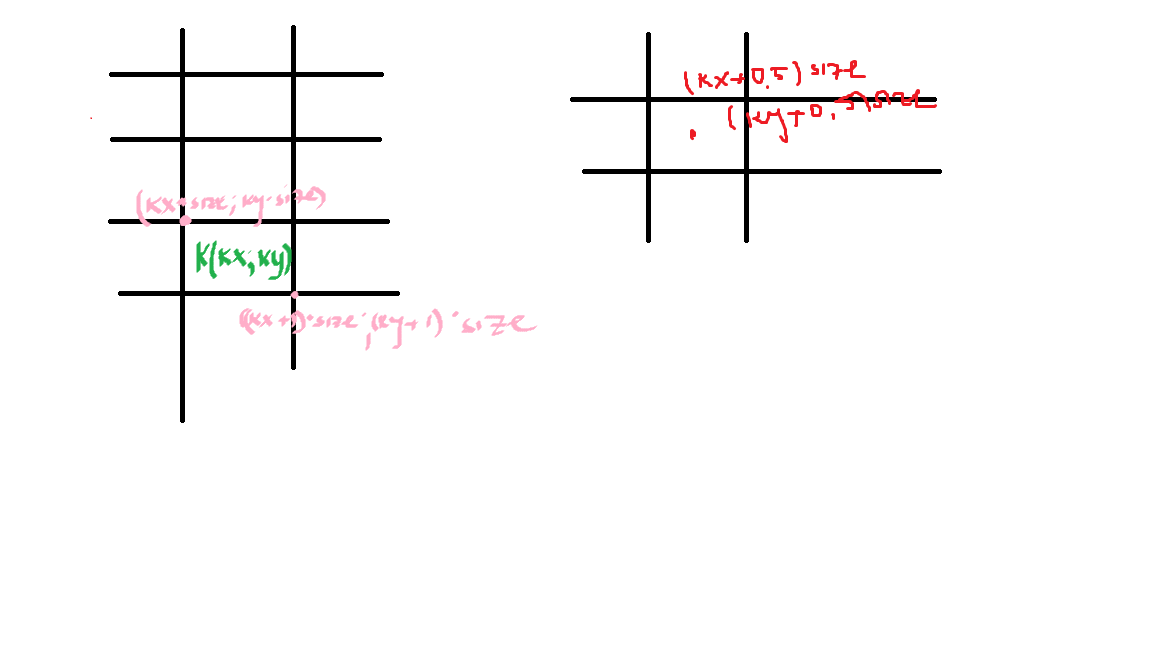 (kx·size; ky·size)
K(kx; ky)
((kx+1)·size; (ky+1)·size
(kx+0.5) size
(ky+0.5)size